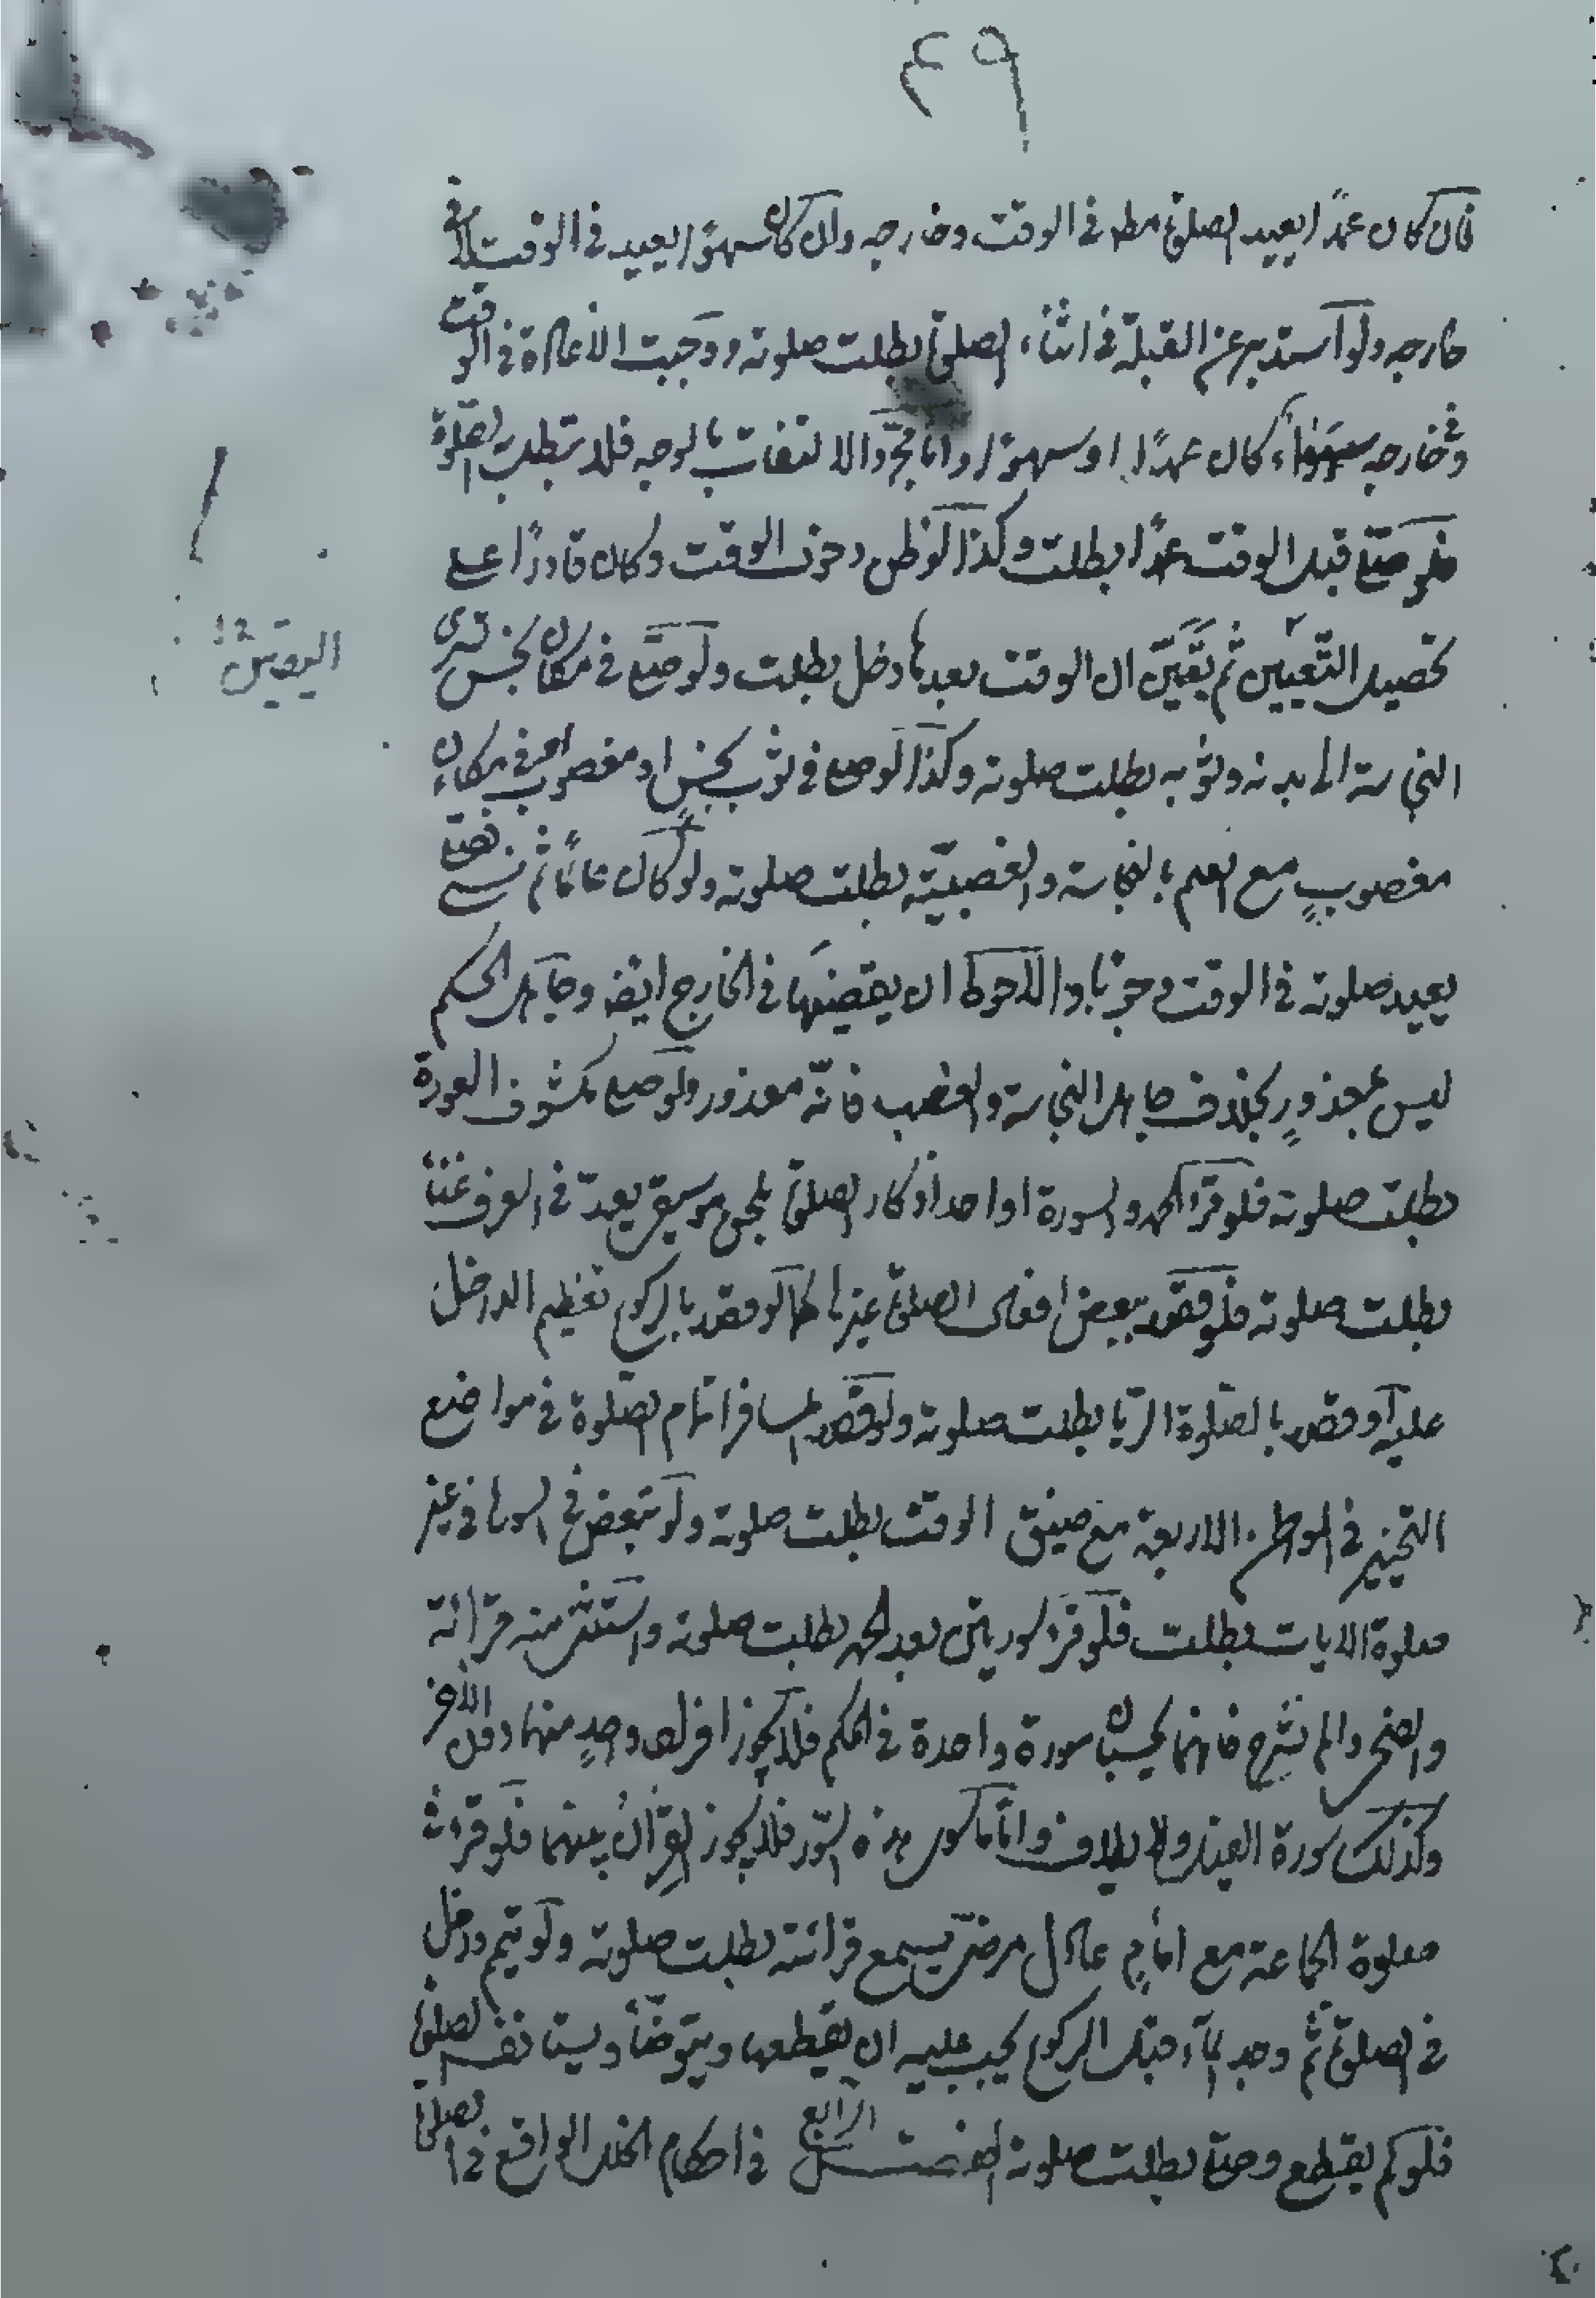 ٤٩
فان كان عمدًا يعيد الصلوة مطلقا فى الوقت وخارجه وان كان سهوًا يعيد فى الوقت لا فى
خارجه ولو استدبر عن القبلة فى اثناء الصلوة بطلت صلوته ووجبت الاعادة فى الوقت
وفى خارجه سواء كان عمدًا او سهوًا واما مجرّد الالتفات بالوجه فلا تبطل به الصلوة
فلو صلى قبل الوقت عمدًا بطلت وكذا لو ظن دخول الوقت وكان قادرًا على
تحصيل التعيين ثم تيقن ان الوقت بعد ما دخل بطلت ولو صلى فى مكان نجس تسرى
اليقين
النجاسة الى بدنه وثوبه بطلت صلوته وكذا لو صلى فى ثوب نجسٍ او مغصوب او فى مكان
مغصوبٍ مع العلم بالنجاسة والغصبيّة بطلت صلوته ولو كان عالمًا ثم نسى فصلى
يعيد صلوته فى الوقت وجوبا والاحوط ان يقضيها فى الخارج ايضا وجاهل الحكم
ليس بمعذورٍ بخلاف جاهل النجاسة والغصب فانّه معذور ولو صلى مكشوف العورة
بطلت صلوته فلو قرأ الحمد والسورة او احد اذكار الصلوة بلحن موسيقى يعدّ فى العرف غناءً
بطلت صلوته فلو قصد ببعض افعال الصلوة غيرها كما لو قصد بالركوع تعظيم الداخل
عليه او قصد بالصّلوة الرّيا بطلت صلوته ولو قصد المسافر اتمام الصّلوة فى مواضع
التخيير فى المواطن الاربعة مع ضيق الوقت بطلت صلوته ولو تبعض فى السورة فى غير
صلوة الايات بطلت فلو قرء سورتين بعد الحمد بطلت صلوته واستثنى منه قرائة
والضحى والم نشرح فانهما يحسبان سورة واحدة فى الحكم فلا يجوز افراد واحدٍ منهما دون الأخر
وكذلك سورة الفيل ولايلاف واما ما سوى هذه السّور فلا يجوز القِرانُ بينهما فلو قرء فى
صلوة الجماعة مع امامٍ عادل مرضىّ يسمع قرائته بطلت صلوته ولو تيمم ودخل
فى الصلوة ثم وجد الماء قبل الركوع يجب عليه ان يقطعها ويتوضّأ ويستانف الصلوة
فلو لم يقطع وصلى بطلت صلوته الفصل الرابع فى احكام الخلل الواقع فى الصلوة